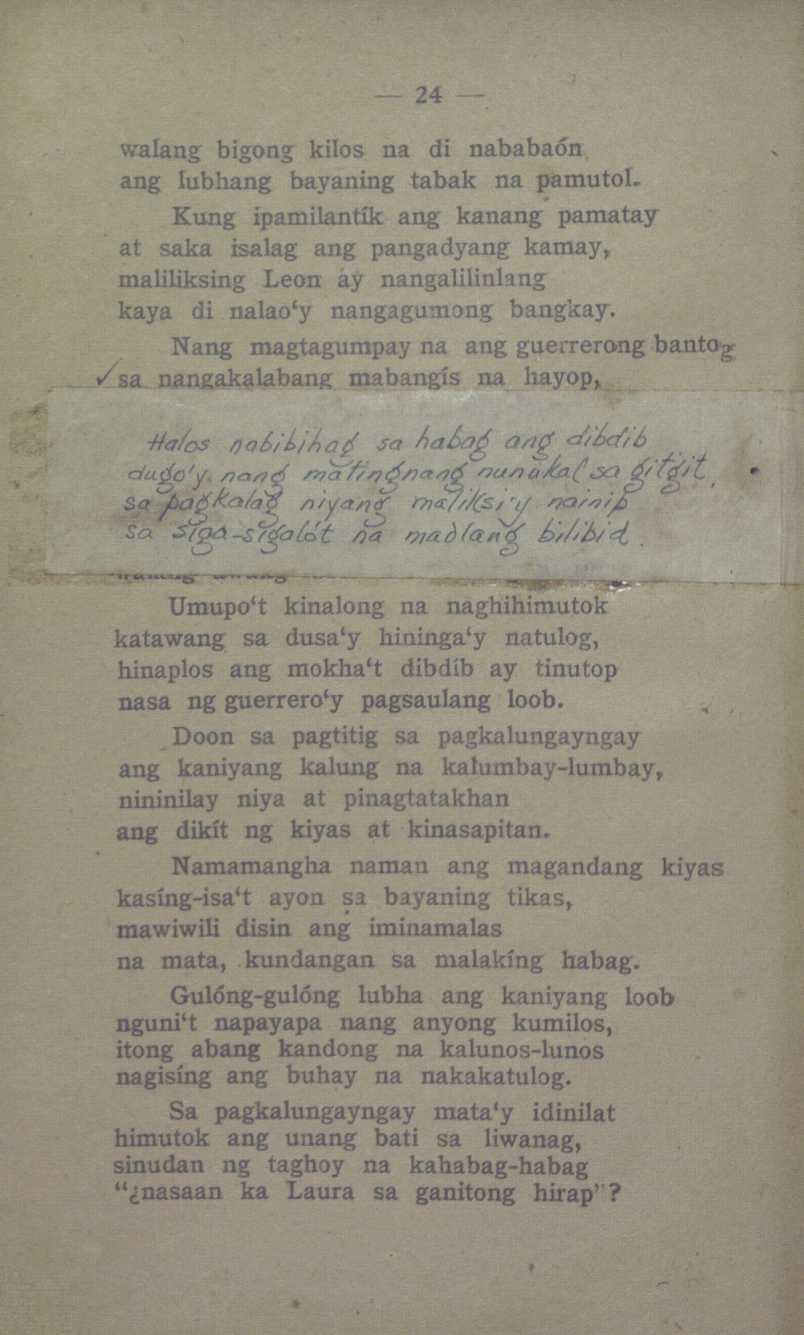 — 24 —
walang bigong kilos na di nababaón
ang lubhang bayaning tabak na pamutol.
Kung ipamilantík ang kanang pamatay
at saka isalag ang pangadyang kamay,
maliliksing Leon ay nangalilinlang
kaya di nalao‘y nangagumong bangkay.
Nang magtagumpay na ang guerrerong bantog
✓sa nangakalabang mabangís na hayop,
Halos nabibihag sa habag ang dibdib
dugo'y, nang matingnang nunukal sa gitgit,
sa pagkalag niyang maliksi'y nainip
sa siga-sigalót na madlang bilibid.
Umupo‘t kinalong na naghihimutok
katawang sa dusa‘y hininga‘y natulog,
hinaplos ang mokha‘t dibdíb ay tinutop
nasa ng guerrero‘y pagsaulang loob.
Doon sa pagtitig sa pagkalungayngay
ang kaniyang kalung na kalumbay-lumbay,
nininilay niya at pinagtatakhan
ang dikít ng kiyas at kinasapitan.
Namamangha naman ang magandang kiyas
kasíng-isa‘t ayon sa bayaning tikas,
mawiwili disin ang iminamalas
na mata, kundangan sa malakíng habag.
Gulóng-gulóng lubha ang kaniyang loob
nguni‘t napayapa nang anyong kumilos,
itong abang kandong na kalunos-lunos
nagisíng ang buhay na nakakatulog.
Sa pagkalungayngay mata‘y idinilat
himutok ang unang bati sa liwanag,
sinudan ng taghoy na kahabag-habag
“¿nasaan ka Laura sa ganitong hirap”?